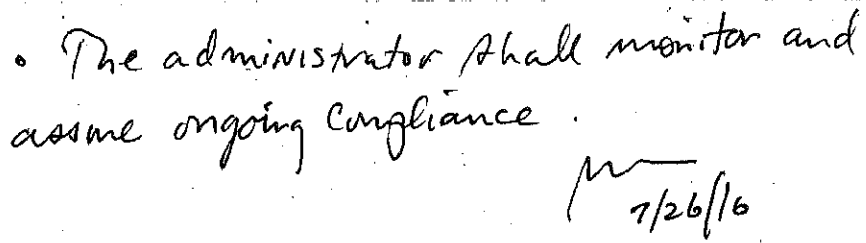 • The administrator shall monitor and
assure ongoing compliance.
7/26/16